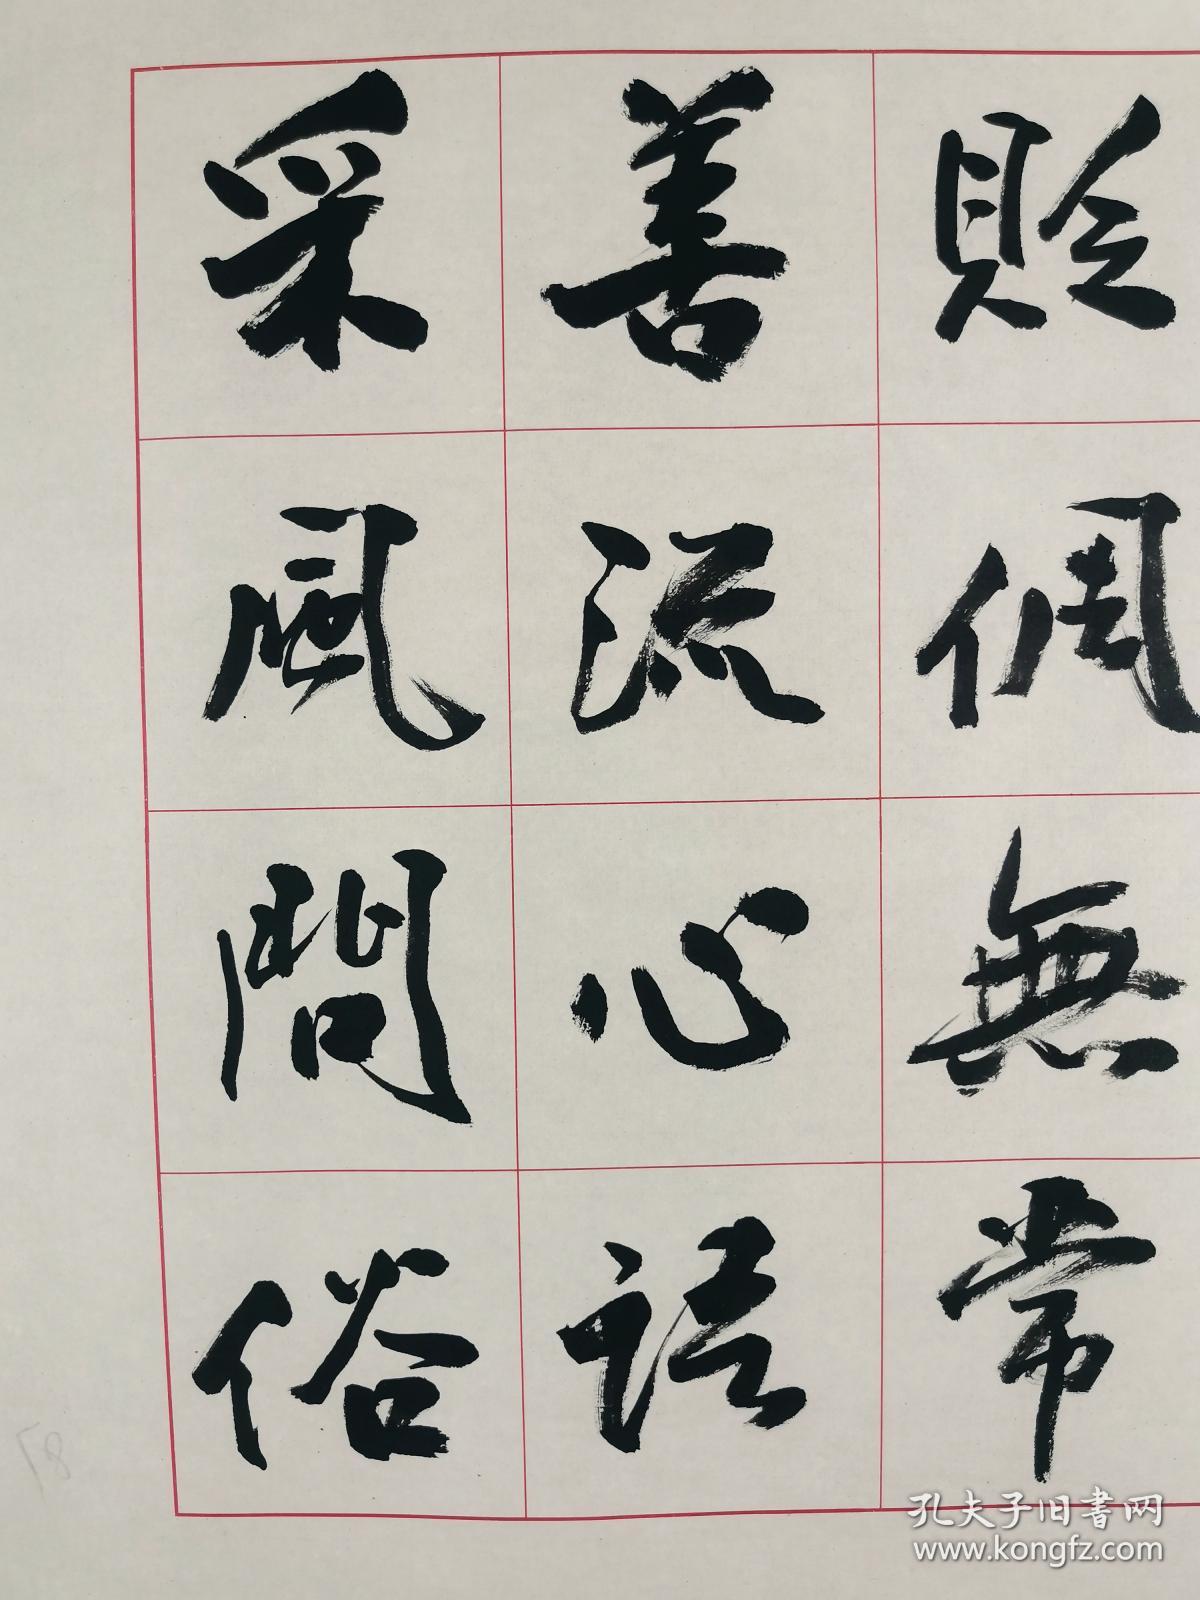 倜無常
善流心語
采風問俗
孔夫子旧書网
www.kongfz.com